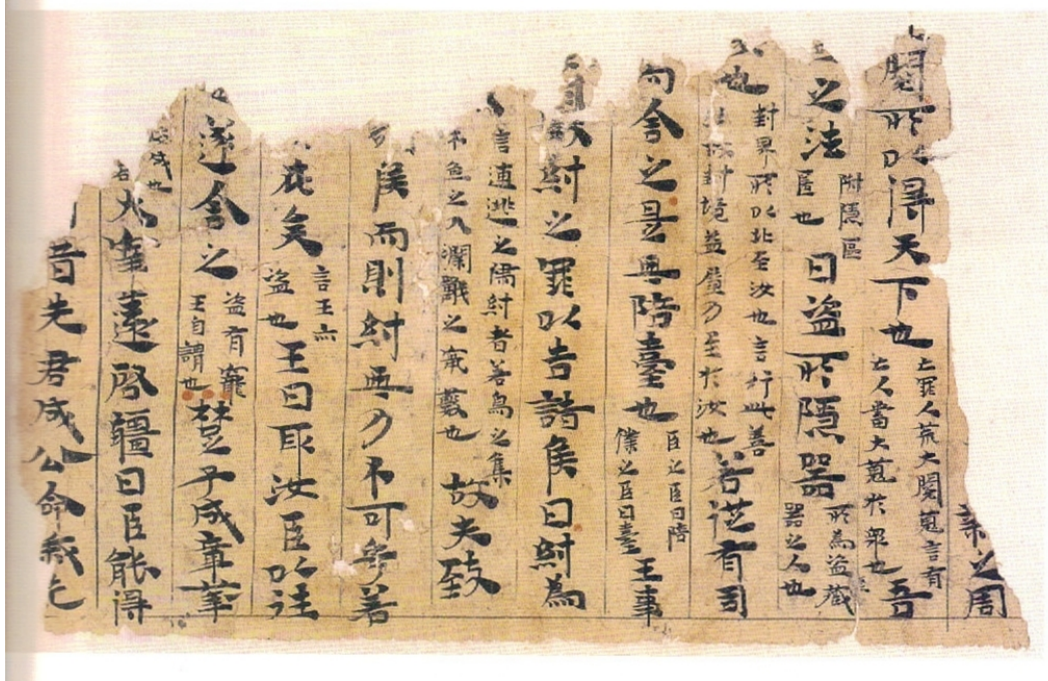 棄之周
閱所以得天下也亡罪人荒大閱蒐言有亡人當大蒐於衆也吾
之法附隱區匿也曰盜所隱器所為盜臧器之人也
也封畀所以北至汝也言行此善故封境益廣乃至於汝也若從有司
句舍之是無陪臺也臣之臣曰陪僕之臣曰臺王事
數紂之罪以告諸侯曰紂為
言逋逃之歸紂者若鳥之集魚之入瀾戲之藪也故夫致
侯而則紂無乃不可乎若
在矣言王亦盜也王曰取汝臣以往
遂舍之盜有寵王自謂也楚子成章華
成也大宰薳啓疆曰臣能得
昔先君成公命我先